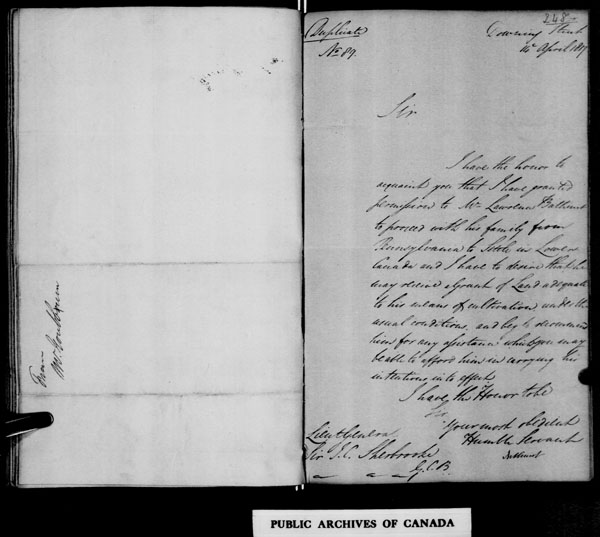 From
Mr Goulburn
248
(Duplicate)
No 89.
Downing Street
April 1817
Sir
I have the honor to
acquaint you that I have granted
permission to Mr Lawrence Bathurst
to proceed with his family from
Pennsylvania to settle in Lower
Canada and I have to desire that he
may receive a Grant of Land adequate
to his means of cultivation under the
usual conditions, and beg to recommend
him for any assistance which you may
be able to afford him in carrying his
intentions into effect
I have the Honor to be
Sir,
Your most obedient
Humble Servant
Bathurst
Lieut General
Sir J. C. Sherbrooke
G.C.B.
PUBLIC ARCHIVES OF CANADA